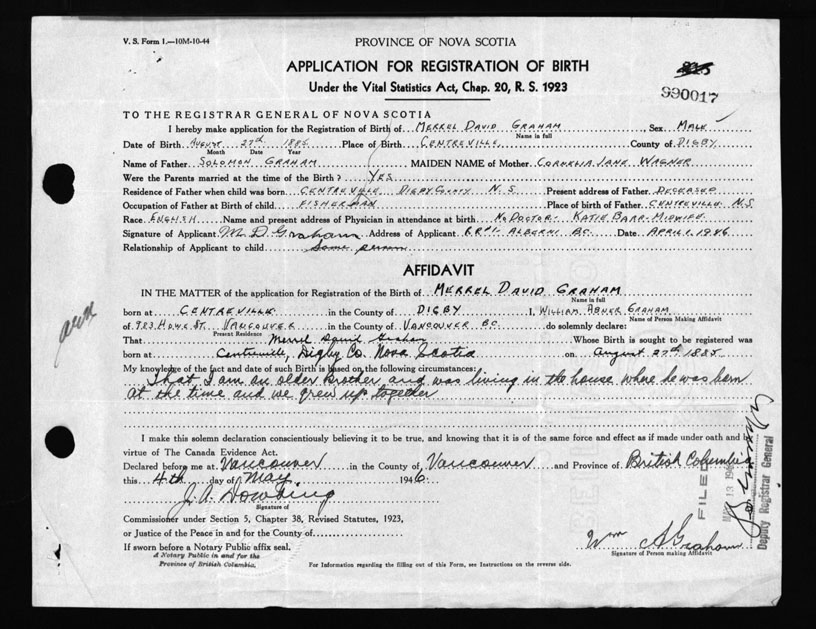 V. S. Form 1.—10M-10-44
PROVINCE OF NOVA SCOTIA
APPLICATION FOR REGISTRATION OF BIRTH
Under the Vital Statistics Act, Chap. 20, R. S. 1923
990017
TO THE REGISTRAR GENERAL OF NOVA SCOTIA
I hereby make application for the Registration of Birth of MERREL DAVID GRAHAM, Sex MALE
Name in full
Date of Birth AUGUST 27th 1885 Place of Birth CENTREVILLE, County of DIGBY
Month Date Year
Name of Father SOLOMON GRAHAM MAIDEN NAME of Mother CORNELIA JANE WAGNER
Were the Parents married at the time of the Birth? YES
Residence of Father when child was born CENTREVILLE DIGBY COUNTY N.S. Present address of Father DECEASED
Occupation of Father at Birth of child FISHERMAN Place of birth of Father CENTREVILLE N.S.
Race ENGLISH Name and present address of Physician in attendance at birth NO DOCTOR- KATIE BARR-MIDWIFE
Signature of Applicant M. D. Graham Address of Applicant RR#1- ALBERNI BC. Date APRIL 1, 1946
Relationship of Applicant to child Same person
AFFIDAVIT
IN THE MATTER of the application for Registration of the Birth of MERREL DAVID GRAHAM
Name in full
born at CENTREVILLE in the County of DIGBY I, WILLIAM ABNER GRAHAM
Name of Person Making Affidavit
of 923 HOWE ST. VANCOUVER in the County of VANCOUVER BC. do solemnly declare:
Present Residence
That Merrel David Graham Whose Birth is sought to be registered was
born at Centreville, Digby Co. Nova Scotia on August 27th 1885
My knowledge of the fact and date of such Birth is based on the following circumstances:
That I am an older brother and was living in the house where he was born
at the time and we grew up together
I make this solemn declaration conscientiously believing it to be true, and knowing that it is of the same force and effect as if made under oath and by
virtue of The Canada Evidence Act.
Declared before me at Vancouver in the County of Vancouver and Province of British Columbia
this 4th day of May 1946.
J. A. Dowding
Signature of
Commissioner under Section 5, Chapter 38, Revised Statutes, 1923,
or Justice of the Peace in and for the County of
If sworn before a Notary Public affix seal.
A Notary Public in and for the
Province of British Columbia.
Wm A Graham
Signature of Person making Affidavit
For Information regarding the filling out of this Form, see Instructions on the reverse side.
FILED
Deputy Registrar General